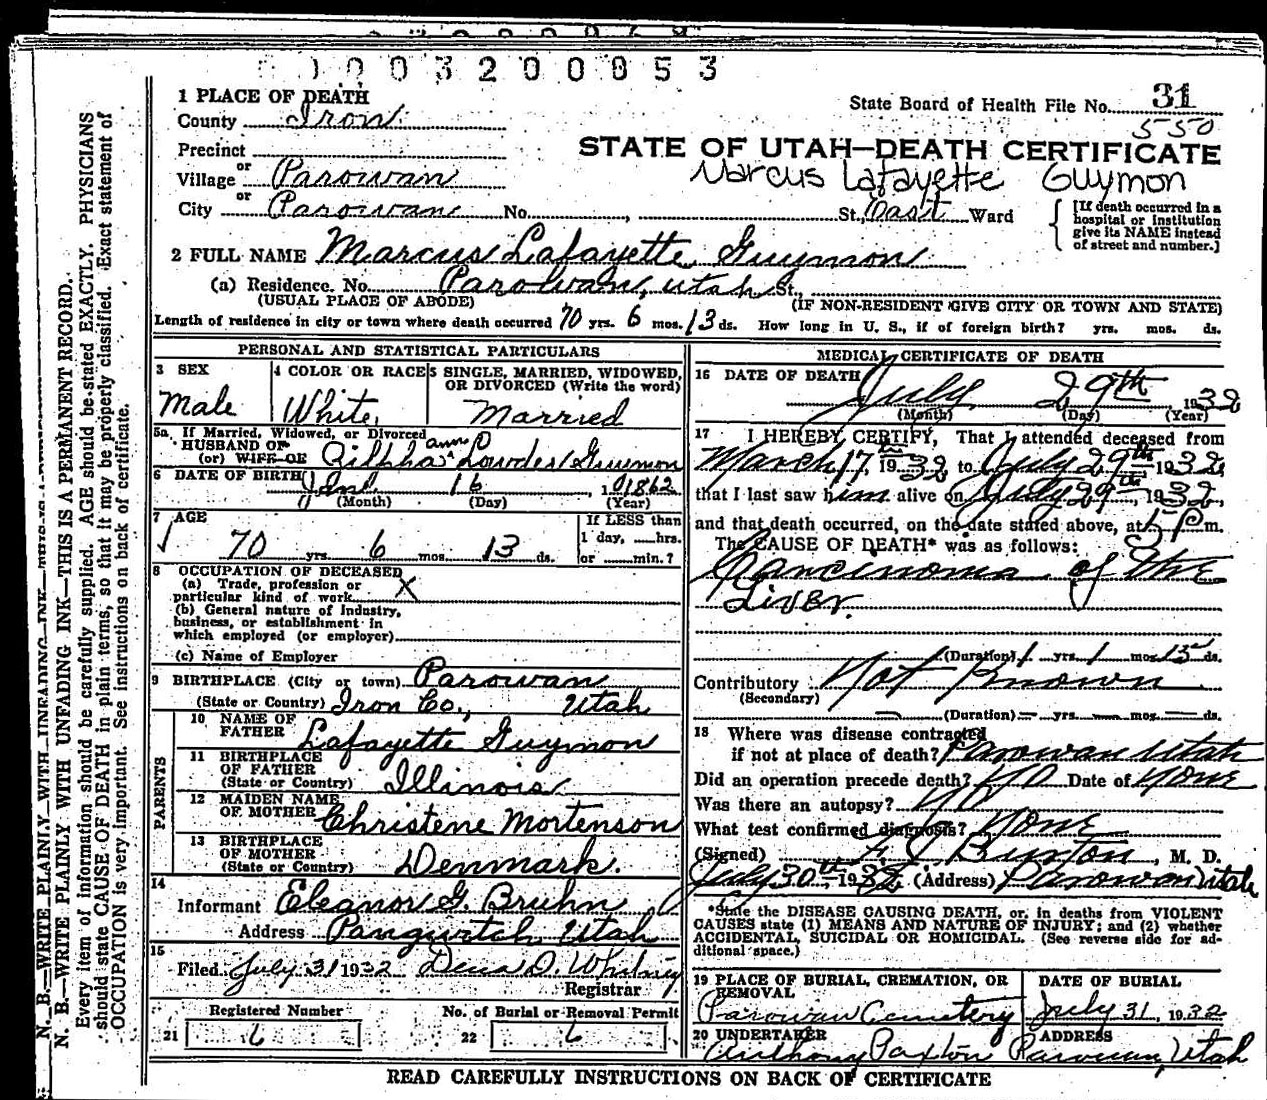 0 0 3 2 0 0 0 5 3
1 PLACE OF DEATH
County Iron
State Board of Health File No. 31
550
Precinct
or
Village Parowan
or
City Parowan No. , St., East Ward
STATE OF UTAH—DEATH CERTIFICATE
Marcus Lafayette Guymon
[If death occurred in a hospital or institution give its NAME instead of street and number.]
2 FULL NAME Marcus Lafayette Guymon
(a) Residence. No. Parowan, Utah St.,
(USUAL PLACE OF ABODE) (IF NON-RESIDENT GIVE CITY OR TOWN AND STATE)
Length of residence in city or town where death occurred 70 yrs. 6 mos. 13 ds. How long in U. S., if of foreign birth? yrs. mos. ds.
PERSONAL AND STATISTICAL PARTICULARS
3 SEX
Male
4 COLOR OR RACE
White
5 SINGLE, MARRIED, WIDOWED, OR DIVORCED (Write the word)
Married
5a. If Married, Widowed, or Divorced
HUSBAND OF
(or) WIFE OF Zilpha Ann Lowder Guymon
6 DATE OF BIRTH Jan. 16, 1862
(Month) (Day) (Year)
7 AGE
70 yrs. 6 mos. 13 ds.
If LESS than
1 day, hrs.
or min.?
8 OCCUPATION OF DECEASED
(a) Trade, profession or
particular kind of work X
(b) General nature of Industry,
business, or establishment in
which employed (or employer)
(c) Name of Employer
9 BIRTHPLACE (City or town) Parowan
(State or Country) Iron Co., Utah
PARENTS
10 NAME OF
FATHER Lafayette Guymon
11 BIRTHPLACE
OF FATHER
(State or Country) Illinois
12 MAIDEN NAME
OF MOTHER Christene Mortenson
13 BIRTHPLACE
OF MOTHER
(State or Country) Denmark.
14
Informant Eleanor G. Bruhn
Address Panguitch, Utah
15
Filed July 31 1932
Registrar
Registered Number
21 6
No. of Burial or Removal Permit
22 6
MEDICAL CERTIFICATE OF DEATH
16 DATE OF DEATH
July 29th 1932
(Month) (Day) (Year)
17 I HEREBY CERTIFY, That I attended deceased from
March 17th 1932 to July 29th 1932
that I last saw him alive on July 29th, 1932,
and that death occurred, on the date stated above, at 5 P m.
The CAUSE OF DEATH* was as follows:
Carcinoma of the
Liver.
(Duration) 1 yrs. 1 mos. 15 ds.
Contributory Not Known
(Secondary)
(Duration) — yrs. — mos. — ds.
18 Where was disease contracted
if not at place of death? Parowan Utah
Did an operation precede death? No Date of None
Was there an autopsy? No
What test confirmed diagnosis? None
(Signed) Burton, M. D.
July 30th 1932 (Address) Parowan Utah
*State the DISEASE CAUSING DEATH, or, in deaths from VIOLENT
CAUSES state (1) MEANS AND NATURE OF INJURY; and (2) whether
ACCIDENTAL, SUICIDAL OR HOMICIDAL. (See reverse side for ad-
ditional space.)
19 PLACE OF BURIAL, CREMATION, OR
REMOVAL
Parowan Cemetery
DATE OF BURIAL
July 31, 1932
20 UNDERTAKER
Anthony Paxton
ADDRESS
Parowan, Utah
READ CAREFULLY INSTRUCTIONS ON BACK OF CERTIFICATE
N. B.—WRITE PLAINLY WITH UNFADING INK—THIS IS A PERMANENT RECORD.
Every item of information should be carefully supplied. AGE should be stated EXACTLY. PHYSICIANS
should state CAUSE OF DEATH in plain terms, so that it may be properly classified. Exact statement of
OCCUPATION is very important. See instructions on back of certificate.